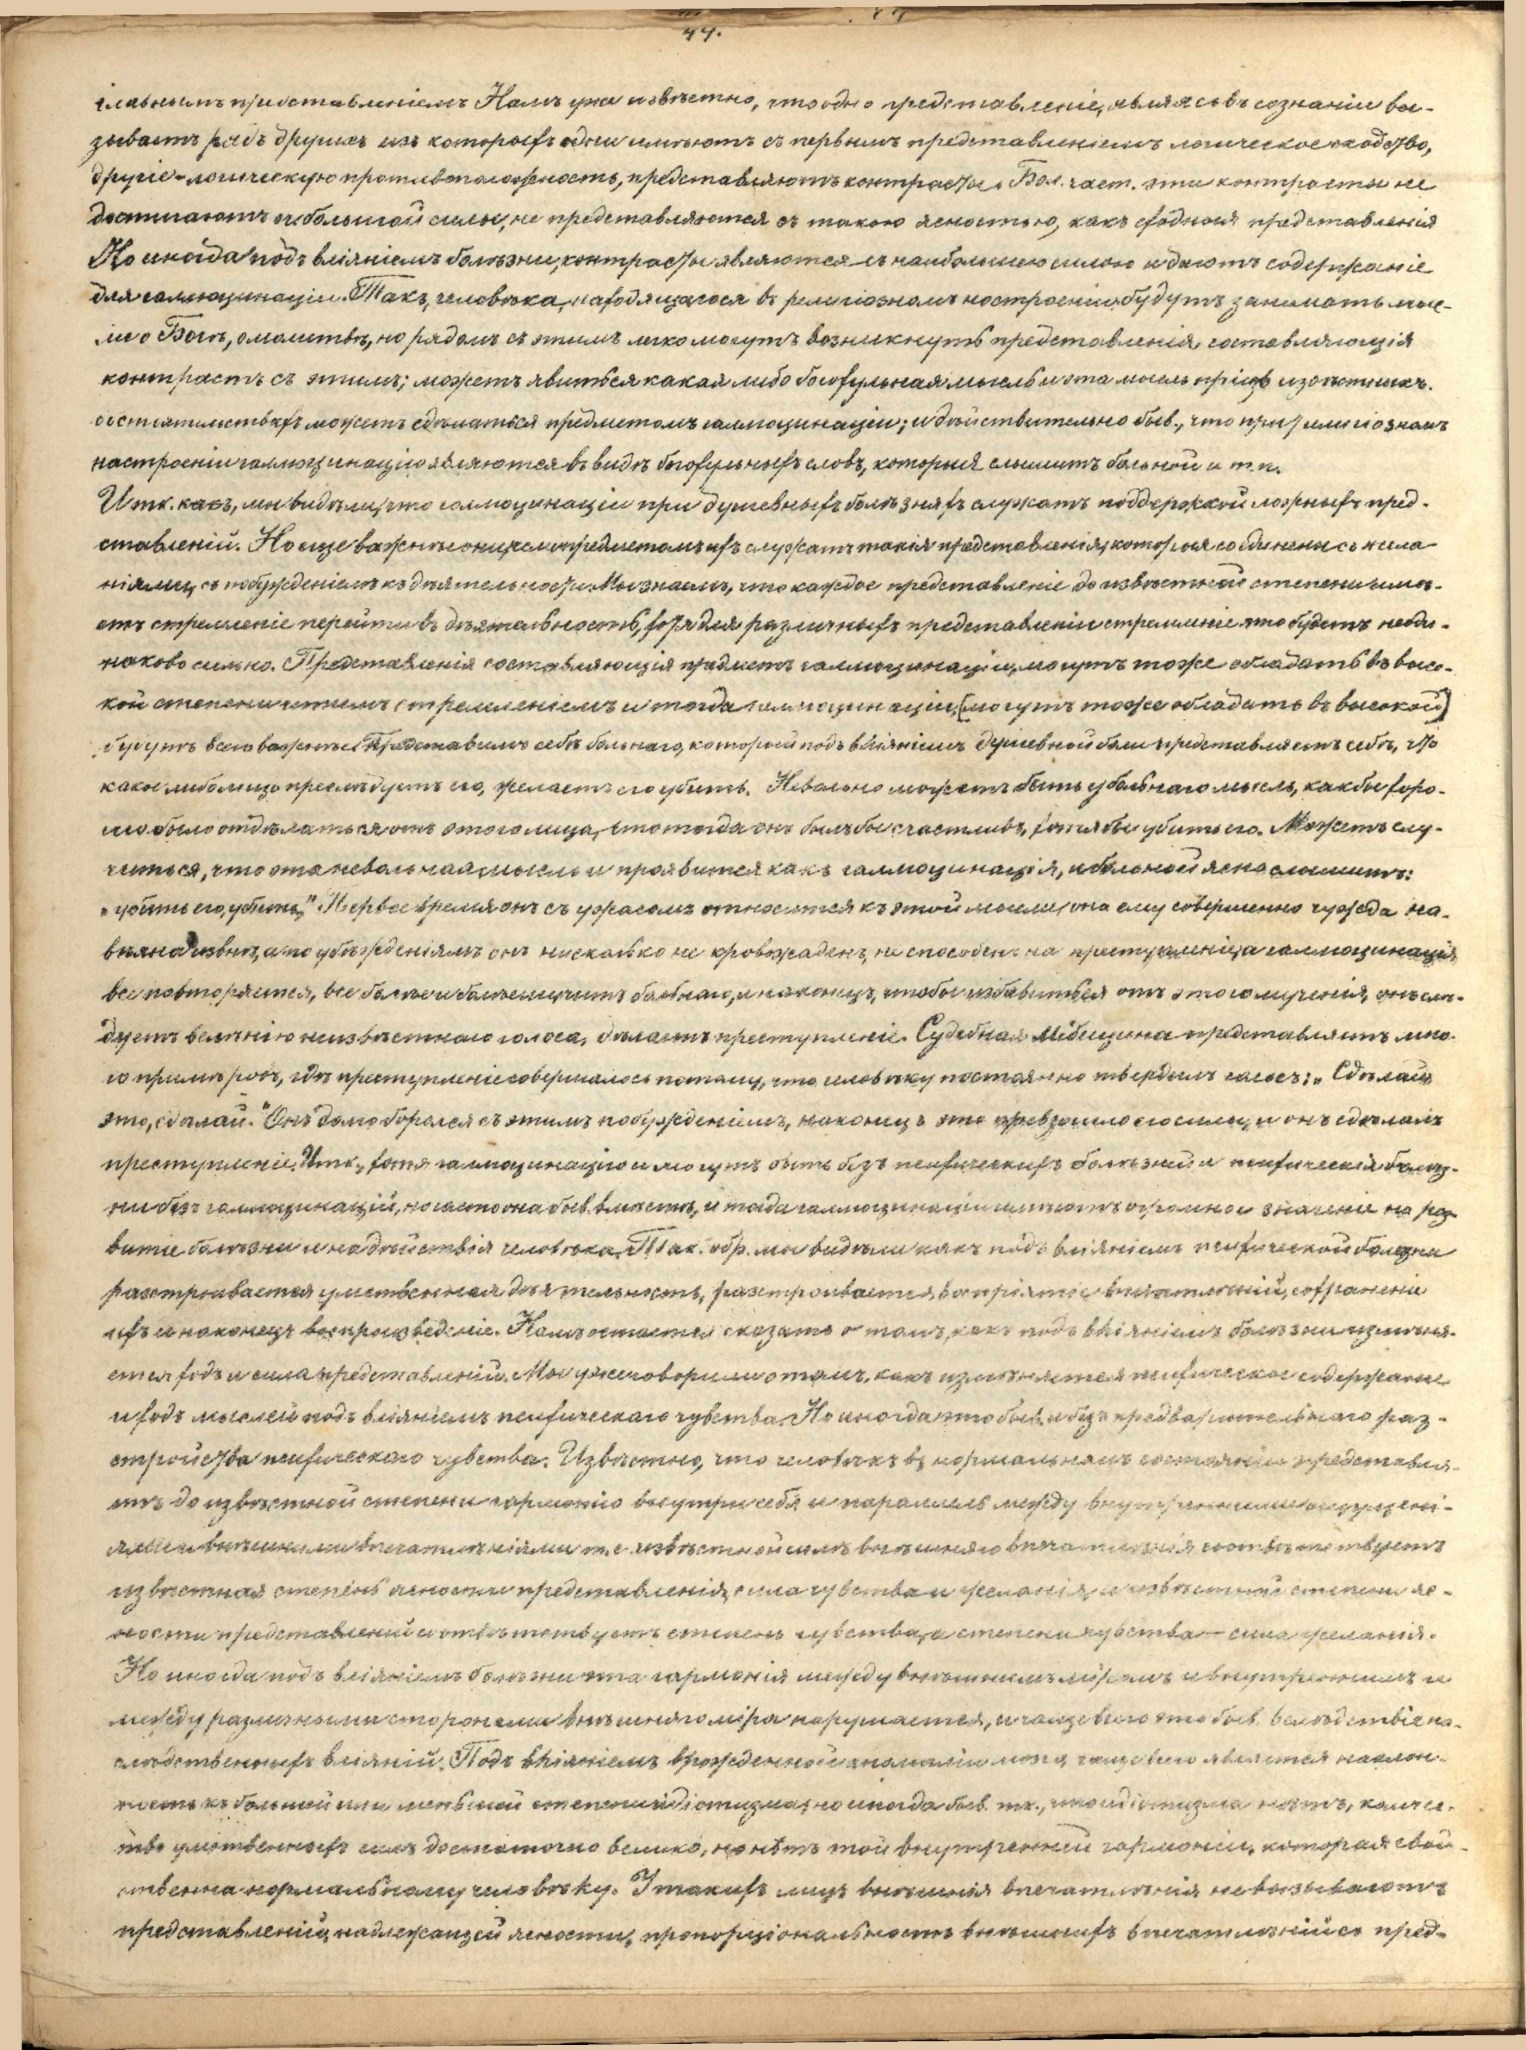 44.
главнымъ представленіемъ Намъ уже извѣстно, что одно представленіе, являясь въ сознаніи вы-
зываетъ рядъ другихъ изъ которыхъ одни имѣютъ съ первымъ представленіемъ логическое сходство,
другіе – логическую противоположность, представляютъ контрасты. Бол. част. эти контрасты не
достигаютъ большой силы, не представляются съ такою ясностью, какъ сходныя представленія
Но иногда подъ вліяніемъ болѣзни, контрасты являются съ наибольшею силою и даютъ содержаніе
для галлюцинаціи. Такъ, человѣка, находящагося въ религіозномъ настроеніи будутъ занимать мыс-
ли о Богѣ, о молитвѣ, но рядомъ съ этимъ легко могутъ возникнуть представленія, составляющія
контрастъ съ этимъ; можетъ явиться какая либо богохульная мысль и эта мысль при извѣстныхъ.
обстоятельствахъ можетъ сдѣлаться предметомъ галлюцинаціи; и дѣйствительно быв., что при религіозномъ
настроеніи галлюцинаціи являются въ видѣ богохульныхъ словъ, которыя слышитъ больной и т. п.
Итк. какъ, мы видѣли, что галлюцинаціи при душевныхъ болѣзняхъ служатъ поддержкой ложныхъ пред-
ставленій. Но еще важнѣе они, если предметомъ ихъ служатъ такія представленія, которыя соединены съ жела-
ніями, съ побужденіемъ къ дѣятельности. Мы знаемъ, что каждое представленіе до извѣстной степени имѣ-
етъ стремленіе перейти въ дѣятельность, хотя для различныхъ представленій стремленіе это будетъ неоди-
наково сильно. Представленія составляющія предметъ галлюцинаціи, могутъ тоже обладать въ высо-
кой степени этимъ стремленіемъ и тогда галлюцинаціи, [могутъ тоже обладать въ высокой]
будутъ всего важнѣе. Представимъ себѣ больнаго, который подъ вліяніемъ душевной боли представляетъ себѣ, что
какое либо лицо преслѣдуетъ его, желаетъ его убить. Невольно можетъ быть у больнаго мысль, какъ бы хоро-
шо было отдѣлаться отъ этого лица, что тогда онъ былъ бы счастливъ, хотя бы убить его. Можетъ слу-
читься, что эта невольная мысль и проявится какъ галлюцинація, и больной ясно слышитъ:
„убить его, убить." Первое время онъ съ ужасомъ относится къ этой мысли, она ему совершенно чужда на-
вѣяна извнѣ, а по убѣжденіямъ онъ нисколько не кровожаденъ, не способенъ на преступленіе, а галлюцинація
все повторяется, все болѣе и болѣе мучитъ больнаго, и наконецъ, чтобы избавиться отъ этого мученія, онъ слѣ-
дуетъ велѣнію неизвѣстнаго голоса, дѣлаетъ преступленіе. Судебная Медицина представляетъ мно-
го примѣровъ, гдѣ преступленіе совершалось потому, что человѣку постоянно твердилъ голосъ: „Сдѣлай
это, сдѣлай." Онъ долго боролся съ этимъ побужденіемъ, наконецъ это превзошло его силы, и онъ сдѣлалъ
преступленіе. Итк., хотя галлюцинаціи и могутъ быть безъ психическихъ болѣзней и психическія болѣз-
ни безъ галлюцинацій, но часто она быв. вмѣстѣ, и тогда галлюцинаціи имѣютъ огромное значеніе на раз-
витіе болѣзни и на дѣйствія человѣка. Так. обр. мы видѣли какъ подъ вліяніемъ психической болезни
разстроивается умственная дѣятельность, разстроивается воспріятіе впечатлѣній, сохраненіе
ихъ и наконецъ воспроизведеніе. Намъ остается сказать о томъ, какъ подъ вліяніемъ болѣзни измѣня-
ется ходъ и сила представленій. Мы уже говорили о томъ, какъ измѣняется психическое содержаніе
и ходъ мыслей подъ вліяніемъ психическаго чувства. Но иногда это быв. и безъ предварительнаго раз-
стройства психическаго чувства. Извѣстно, что человѣкъ въ нормальномъ состояніи представля-
етъ до извѣстной степени гармонію внутри себя и параллель между внутренними ощущені-
ями и внѣшними впечатлѣніями т. е. извѣстной силѣ внѣшняго впечатлѣнія соотвѣтствуетъ
извѣстная степень ясности представленія, сила чувства и желанія, и извѣстной степени яс-
ности представленій соотвѣтствуетъ степень чувства, а степени чувства – сила желанія.
Но иногда подъ вліяніемъ болѣзни эта гармонія между внѣшнимъ міромъ и внутреннимъ и
между различными сторонами внѣшняго міра нарушается, и чаще всего это быв. вслѣдствіе на-
слѣдственныхъ вліяній. Подъ вліяніемъ врожденной аномаліи мозга, чаще всего является наклон-
ность къ большей или меньшей степени идіотизма, но иногда быв. тк., что идіотизма нѣтъ, количес-
тво умственныхъ силъ достаточно велико, но нѣтъ той внутренней гармоніи, которая свой-
ственна нормальному человѣку. У такихъ лицъ внѣшнія впечатлѣнія не вызываютъ
представленій надлежащей ясности, пропорціональность внѣшнихъ впечатлѣній съ пред-